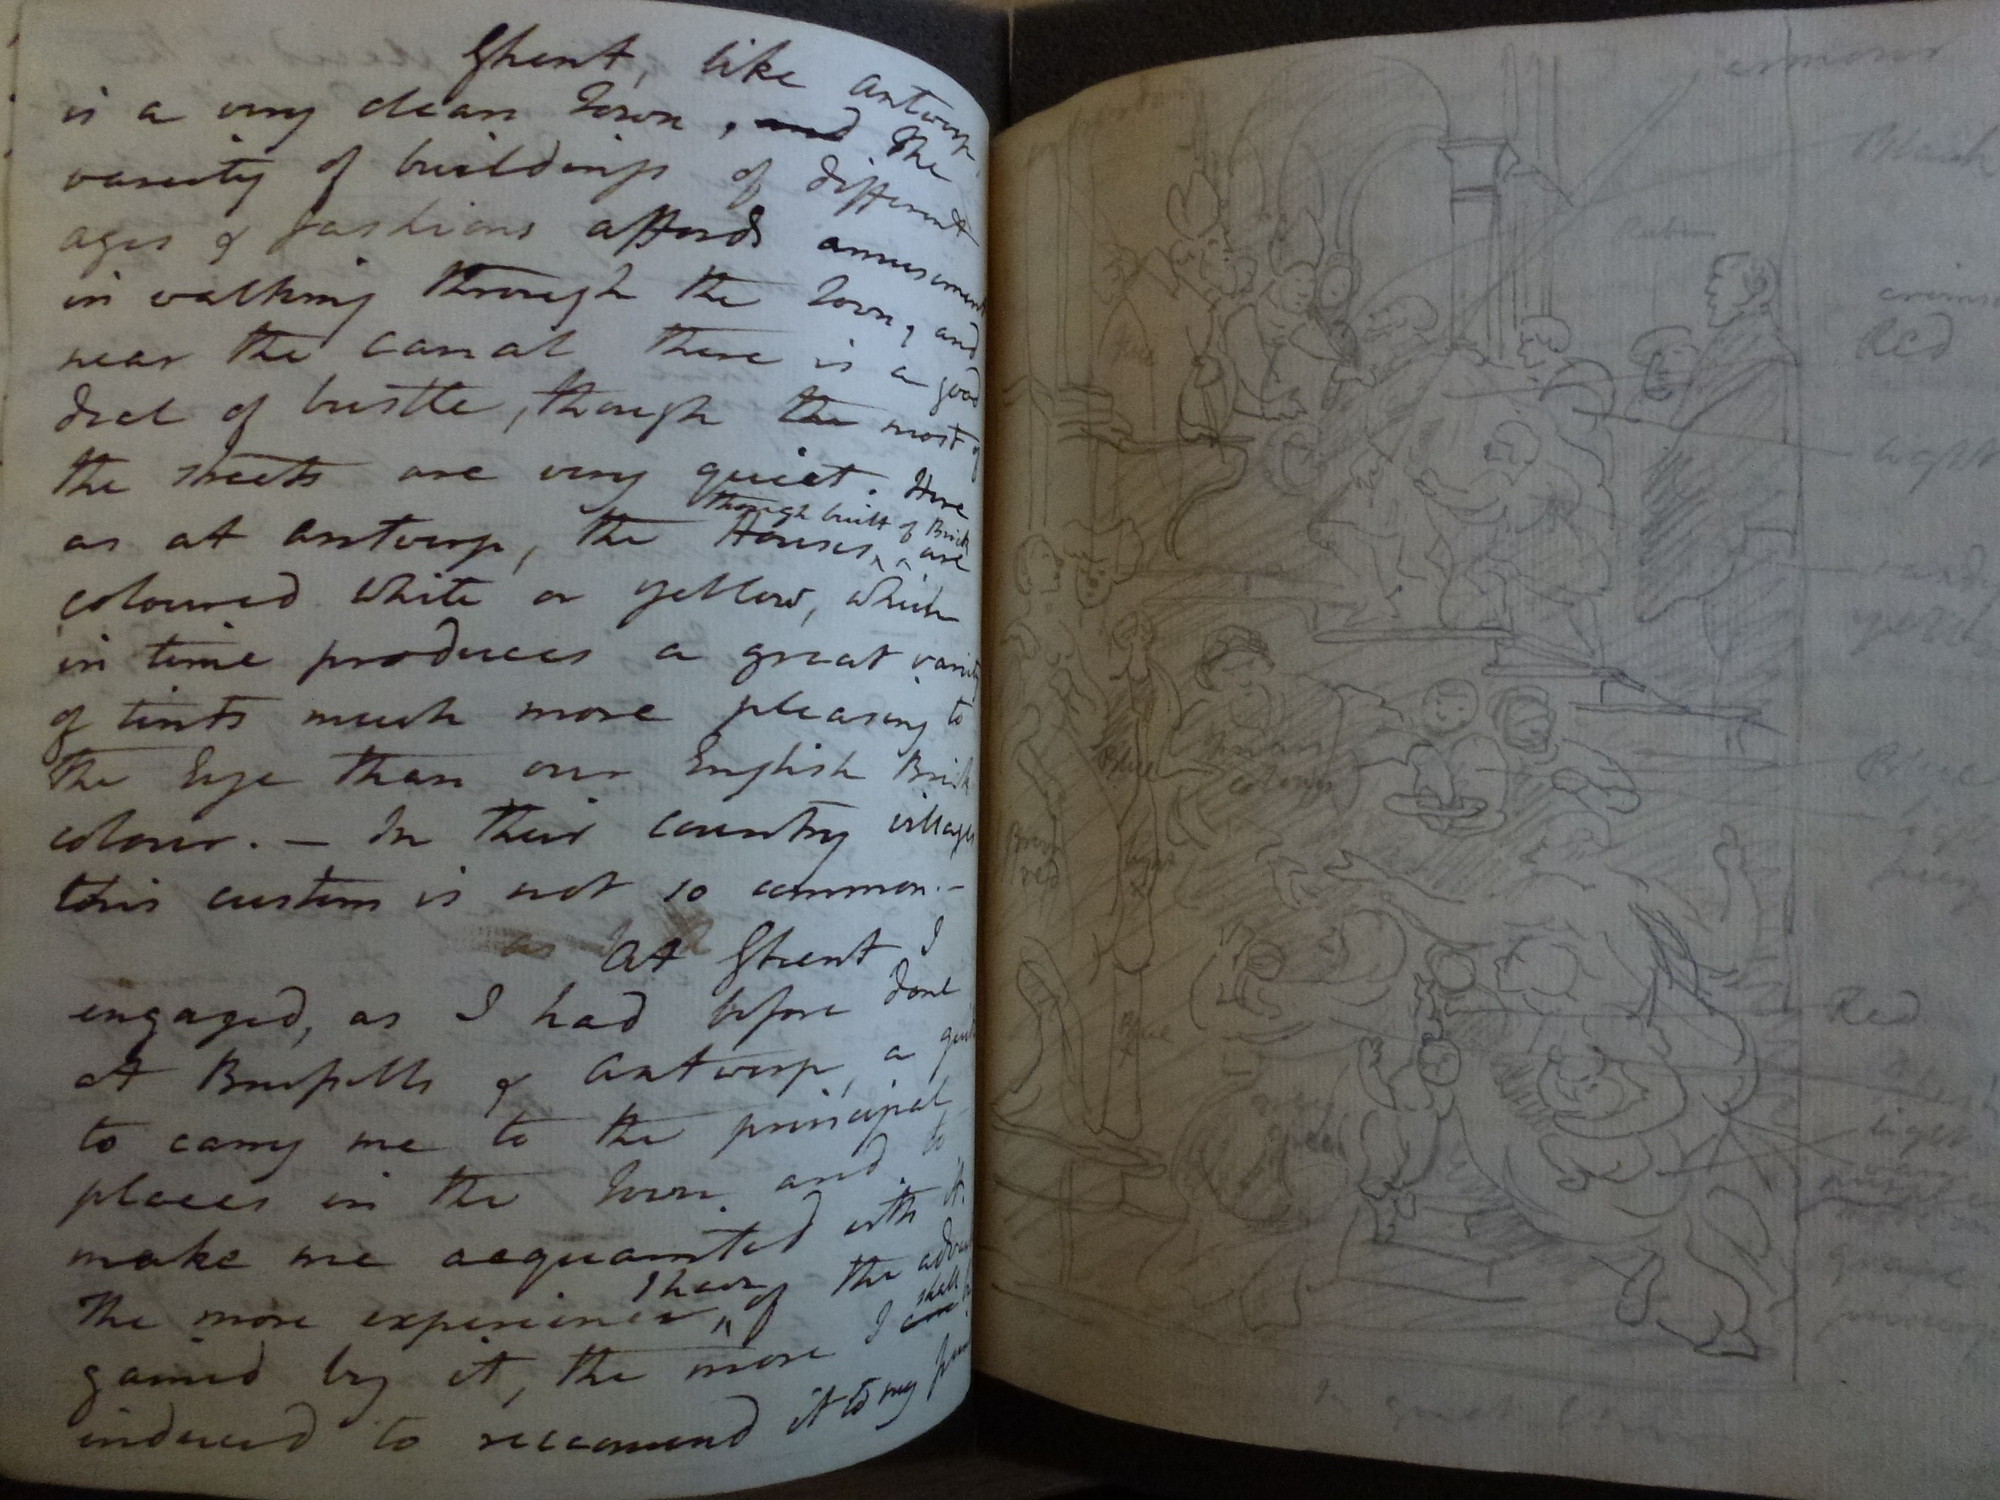 Ghent, like antwerp,
is a very clean Town, and the
variety of buildings of different
ages & fashions affords amusement
in walking through the Town, and
near the canal there is a good
deal of bustle, though the most of
the streets are very quiet. Here
though built of Brick
as at antwerp, the Houses, are
coloured white or yellow, which
in time produces a great variety
of tints much more pleasing to
the Eye than our English Brick
colour. — In their country villages
this custom is not so common. —
as At Ghent I
engaged, as I had before done
at Brussells & antwerp, a guide
to carry me to the principal
places in the Town and to
make me acquainted with it.
I have
the more experience, of the
shall
gained by it, the more I
induced to recommend it to my
armour
Black
Rubens
Red
light
Blue
colour
Blue
Brown
red
Red
Blue
light